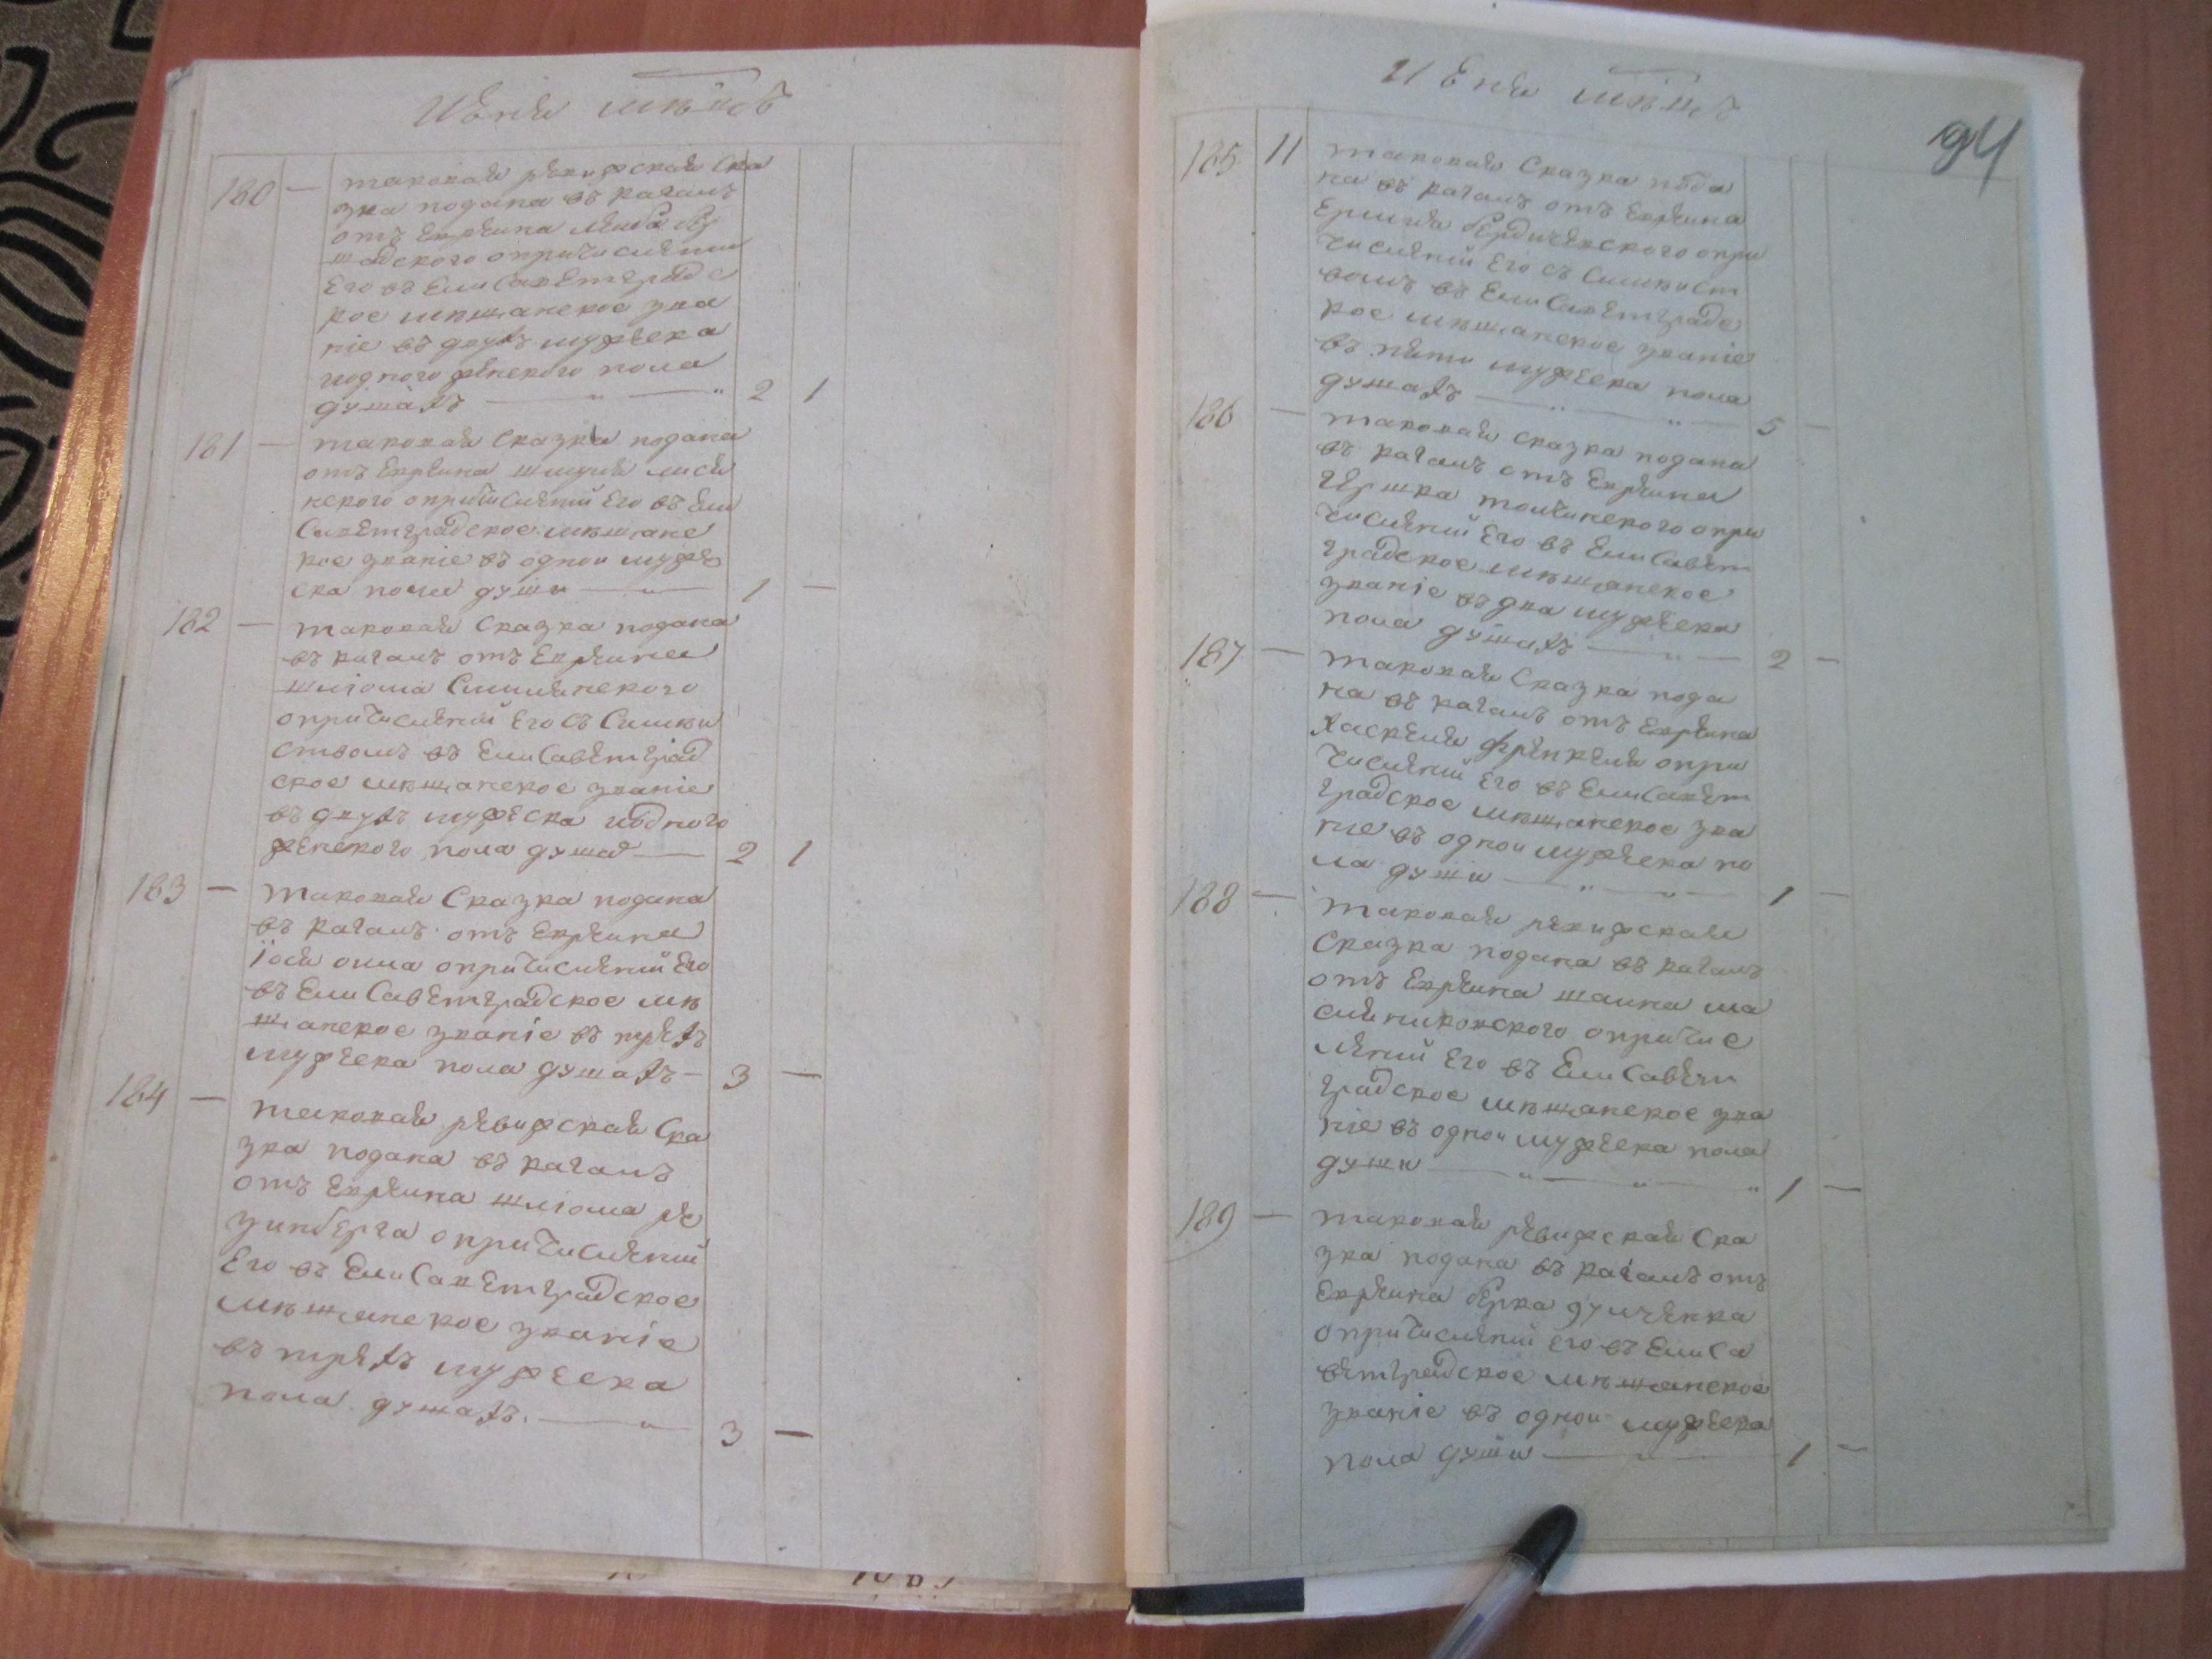 Июня мѣсяцъ
180 — таковая ревижская ска
зка подана въ кагалъ
отъ еврѣина Лейба
шадского опричисленіи
его въ Елисаветградс
кое мѣщанское зва
ніе въ двухъ мужеска
иодного женского пола
душахъ — " — " 2 1
181 — таковая сказка подана
отъ еврѣина Шмуля Лися
нского опричисленіи его въ Ели
саветградское мѣщанс
кое званіе въ одной муже
ска пола души — " — 1 —
182 — таковая сказка подана
въ кагалъ отъ еврѣина
Шліома Смилянского
опричисленіи его съ семѣй
ствомъ въ Елисаветград
ское мѣщанское званіе
въ двухъ мужеска иодного
женского пола душах — 2 1
183 — таковая сказка подана
въ кагалъ отъ еврѣина
опричисленіи его
въ Елисаветградское мѣ
щанское званіе въ трехъ
мужеска пола душахъ — 3 —
184 — таковая ревижская ска
зка подана въ кагалъ
отъ еврѣина Шліома Ре
зинберга опричисленіи
его въ Елисаветградское
мѣщанское званіе
въ трехъ мужеска
пола душахъ. — " 3 —
Июня мѣсяцъ
94
185 11 таковая сказка пода
на въ кагалъ отъ еврѣина
Ершля Бердичевского опри
численіи его съ семѣйст
вомъ въ Елисаветградс
кое мѣщанское званіе
въ пяти мужеска пола
душахъ — " — " — 5 —
186 — таковая сказка подана
въ кагалъ отъ еврѣина
Гершка Толчинского опри
численіи его въ Елисавет
градское мѣщанское
званіе въ два мужеска
пола душахъ — " — 2 —
187 — таковая сказка пода
на въ кагалъ отъ еврѣина
Хаскеля Френкеля опри
численіи его въ Елисавет
градское мѣщанское зва
ние въ одной мужеска по
ла души — " — " — 1 —
188 — таковая ревижская
сказка подана въ кагалъ
отъ еврѣина Ма
сляниковского опричис
леніи его въ Елисавет
градское мѣщанское зва
ніе въ одной мужеска пола
души — " — " — " 1 —
189 — таковая ревижская ска
зка подана въ кагалъ отъ
еврѣина Берка
опричисленіи его въ Елиса
ветградское мѣщанское
званіе въ одной мужеска
пола души — " — 1 —